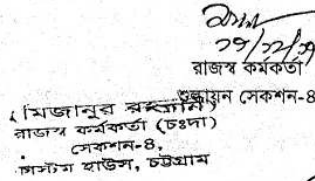 ২৭/১২/২১
রাজস্ব কর্মকর্তা
শুল্কায়ন সেকশন-৪
(মিজানুর রহমান)
রাজস্ব কর্মকর্তা (চঃদা)
সেকশন-৪,
কাস্টম হাউস, চট্টগ্রাম